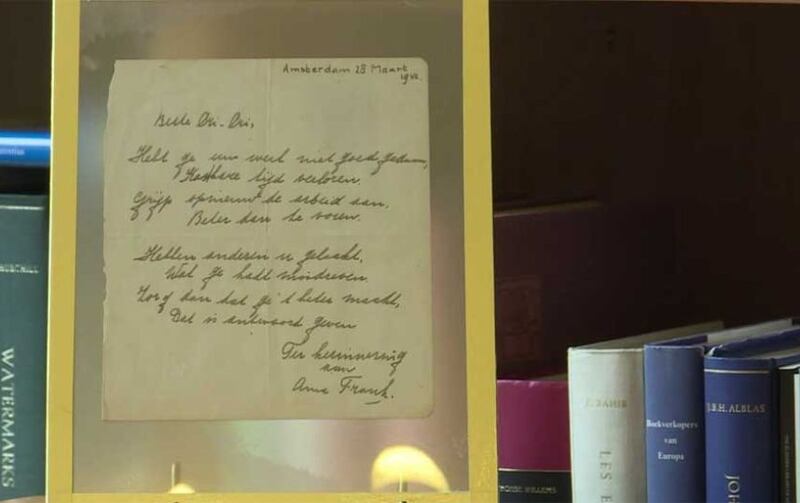 Amsterdam 28 Maart
1942.
Beste Cri-Cri,
Hebt ge uw werk niet goed gedaan,
Kostbare tijd verloren.
Grijp opnieuw de arbeid aan,
Beter dan te voren.
Hebben anderen u gelaakt,
Wat ge hadt misdreven.
Zorg dan dat ge 't beter maakt,
Dat is antwoord geven
Ter herinnering
aan
Anne Frank.
WATERMARKS
LES
Boekverkopers
van
Europa
J.B.H. ALBLAS
WILLEMS